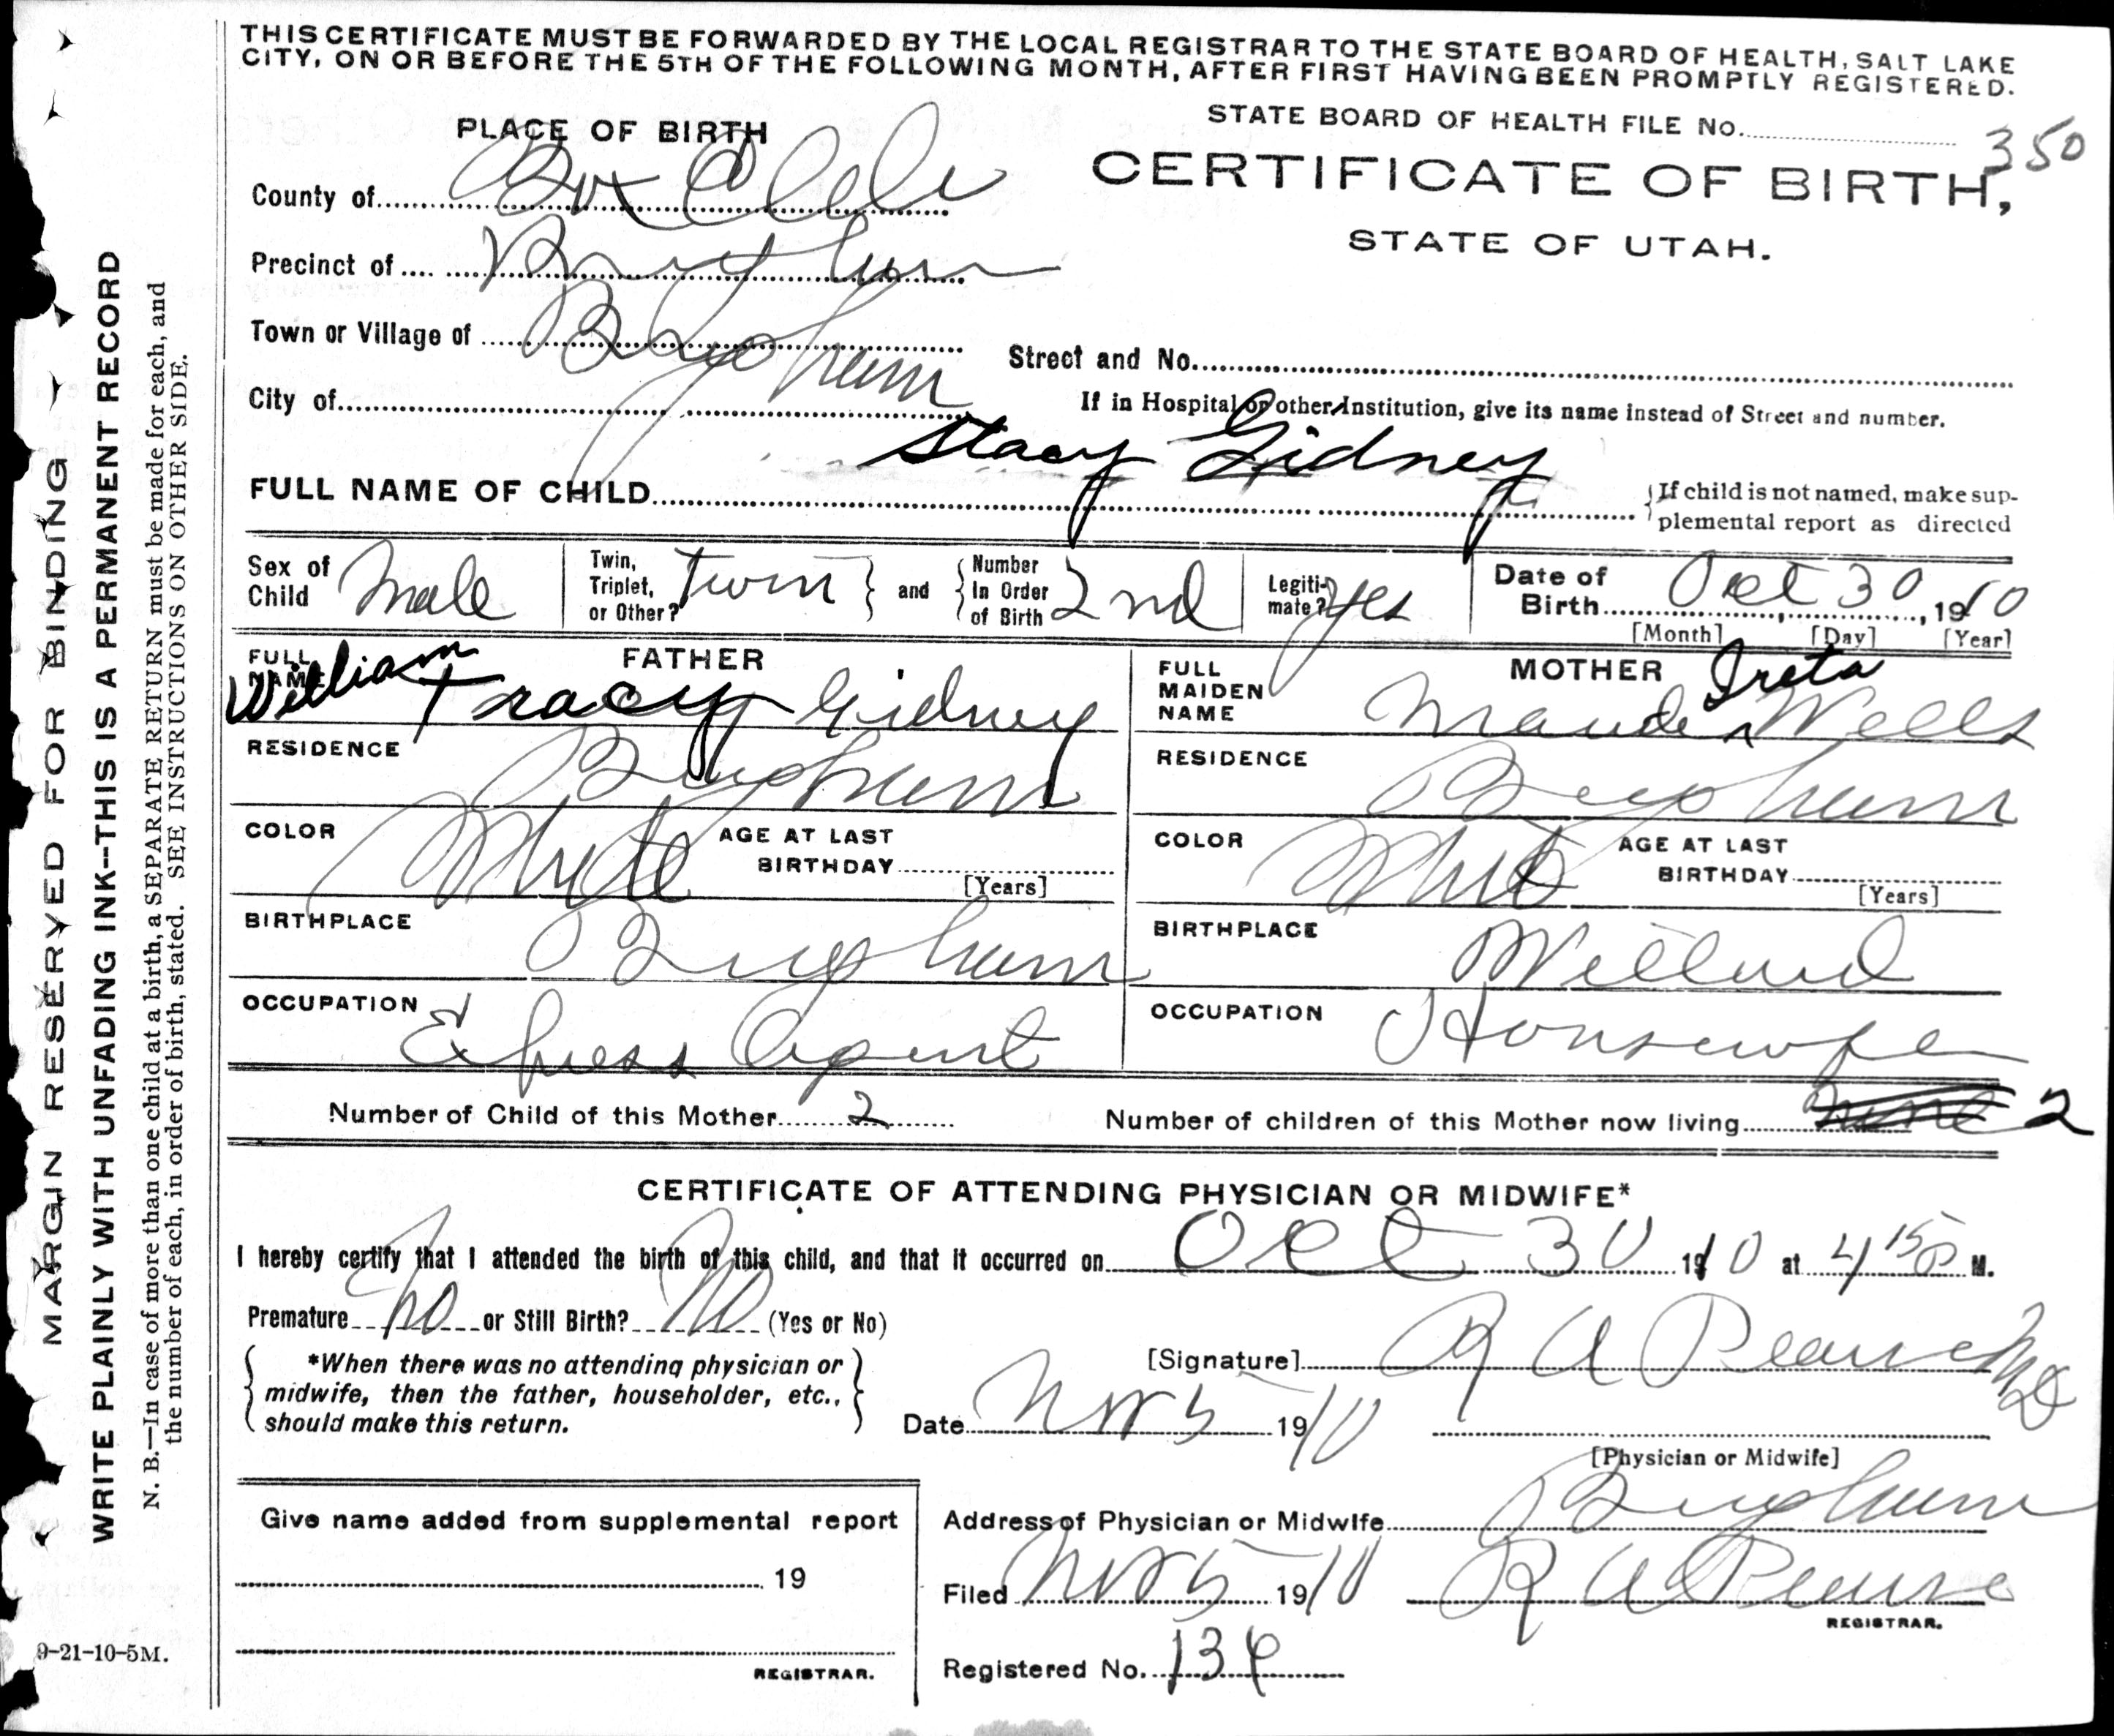 THIS CERTIFICATE MUST BE FORWARDED BY THE LOCAL REGISTRAR TO THE STATE BOARD OF HEALTH, SALT LAKE
CITY, ON OR BEFORE THE 5TH OF THE FOLLOWING MONTH, AFTER FIRST HAVING BEEN PROMPTLY REGISTERED.
STATE BOARD OF HEALTH FILE No. 350
PLACE OF BIRTH
CERTIFICATE OF BIRTH,
STATE OF UTAH.
County of Box Elder
Precinct of Brigham
Town or Village of Brigham
Street and No.
City of
If in Hospital or other Institution, give its name instead of Street and number.
FULL NAME OF CHILD Stacy Gidney
{If child is not named, make sup-
plemental report as directed
Sex of Child Male
Twin, Triplet, or Other? Twin } and { Number In Order of Birth 2nd
Legiti-mate? yes
Date of Birth Oct 30, 1910
[Month] [Day] [Year]
FATHER
FULL NAME William Tracy Gidney
RESIDENCE Brigham
COLOR White
AGE AT LAST BIRTHDAY
[Years]
BIRTHPLACE Brigham
OCCUPATION Express Agent
MOTHER
FULL MAIDEN NAME Maude Ireta Wells
RESIDENCE Brigham
COLOR White
AGE AT LAST BIRTHDAY
[Years]
BIRTHPLACE Willard
OCCUPATION Housewife
Number of Child of this Mother 2
Number of children of this Mother now living 2
CERTIFICATE OF ATTENDING PHYSICIAN OR MIDWIFE*
I hereby certify that I attended the birth of this child, and that it occurred on Oct 30 1910 at 4 15 P M.
Premature no or Still Birth? No (Yes or No)
{ *When there was no attending physician or
midwife, then the father, householder, etc.,
should make this return. }
[Signature] R A Pearse MD
Date Nov 5 1910
[Physician or Midwife]
Give name added from supplemental report
19
REGISTRAR.
Address of Physician or Midwife Brigham
Filed Nov 5 1910 R A Pearse
REGISTRAR.
Registered No. 134
9-21-10-5M.
MARGIN RESERVED FOR BINDING
WRITE PLAINLY WITH UNFADING INK--THIS IS A PERMANENT RECORD
N. B.—In case of more than one child at a birth, a SEPARATE RETURN must be made for each, and
the number of each, in order of birth, stated. SEE INSTRUCTIONS ON OTHER SIDE.